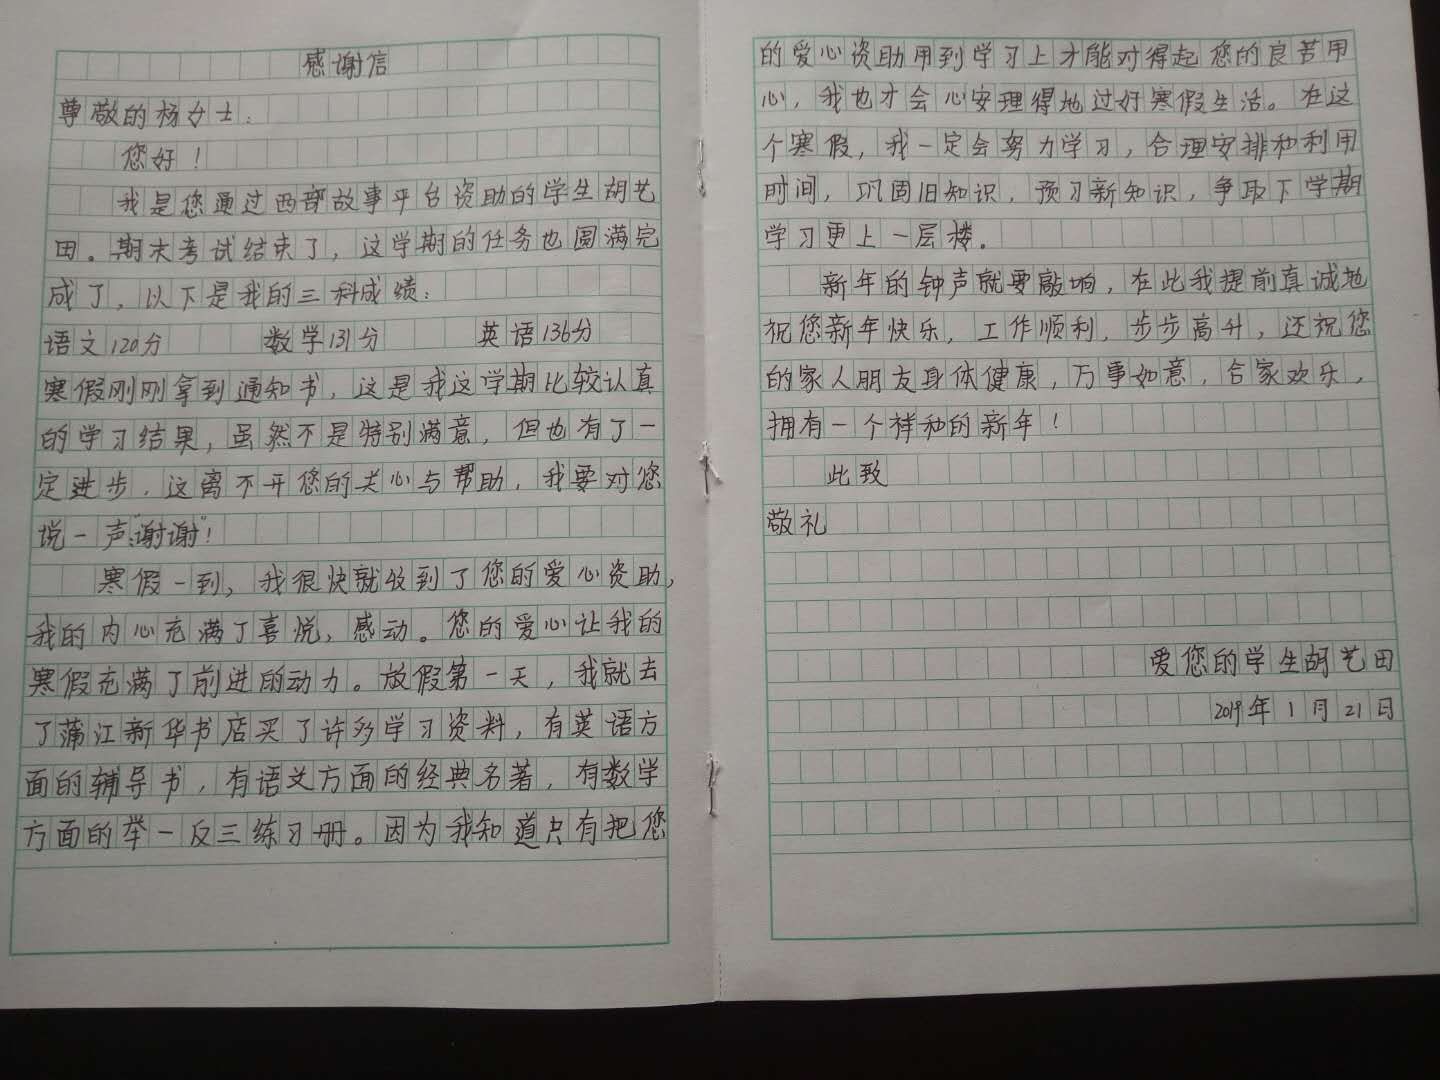 感谢信
尊敬的杨女士：
您好！
我是您通过西部故事平台资助的学生胡艺
田。期末考试结束了，这学期的任务也圆满完
成了，以下是我的三科成绩：
语文120分 数学131分 英语136分
寒假刚刚拿到通知书，这是我这学期比较认真
的学习结果，虽然不是特别满意，但也有了一
定进步，这离不开您的关心与帮助，我要对您
说一声“谢谢”！
寒假一到，我很快就收到了您的爱心资助，
我的内心充满了喜悦，感动。您的爱心让我的
寒假充满了前进的动力。放假第一天，我就去
了蒲江新华书店买了许多学习资料，有英语方
面的辅导书，有语文方面的经典名著，有数学
方面的举一反三练习册。因为我知道只有把您
的爱心资助用到学习上才能对得起您的良苦用
心，我也才会心安理得地过好寒假生活。在这
个寒假，我一定会努力学习，合理安排和利用
时间，巩固旧知识，预习新知识，争取下学期
学习更上一层楼。
新年的钟声就要敲响，在此我提前真诚地
祝您新年快乐，工作顺利，步步高升，还祝您
的家人朋友身体健康，万事如意，合家欢乐，
拥有一个祥和的新年！
此致
敬礼
爱您的学生胡艺田
2019年1月21日